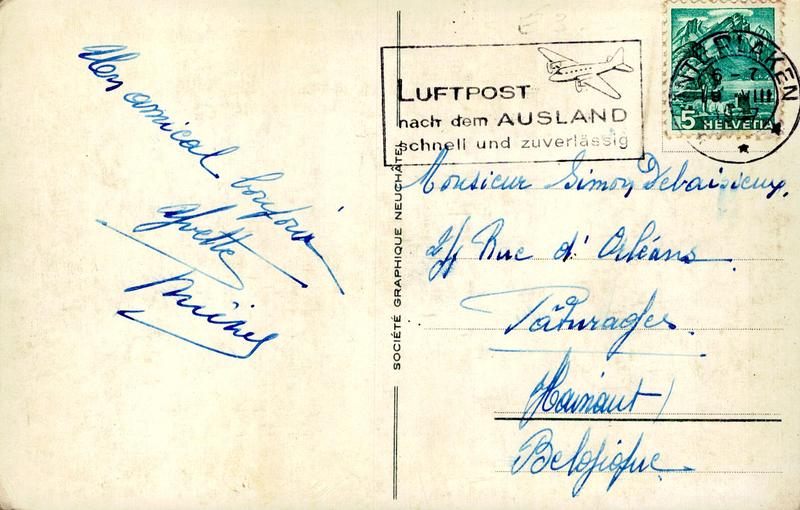 Un amical bonjour
Yvette
Michel
SOCIÉTÉ GRAPHIQUE NEUCHÂTEL
LUFTPOST
nach dem AUSLAND
schnell und zuverlässig
INTERLAKEN
5 HELVETIA
Monsieur Simon Debaisieux.
Rue d'Orléans
Pâturages.
Hainaut)
Belgique